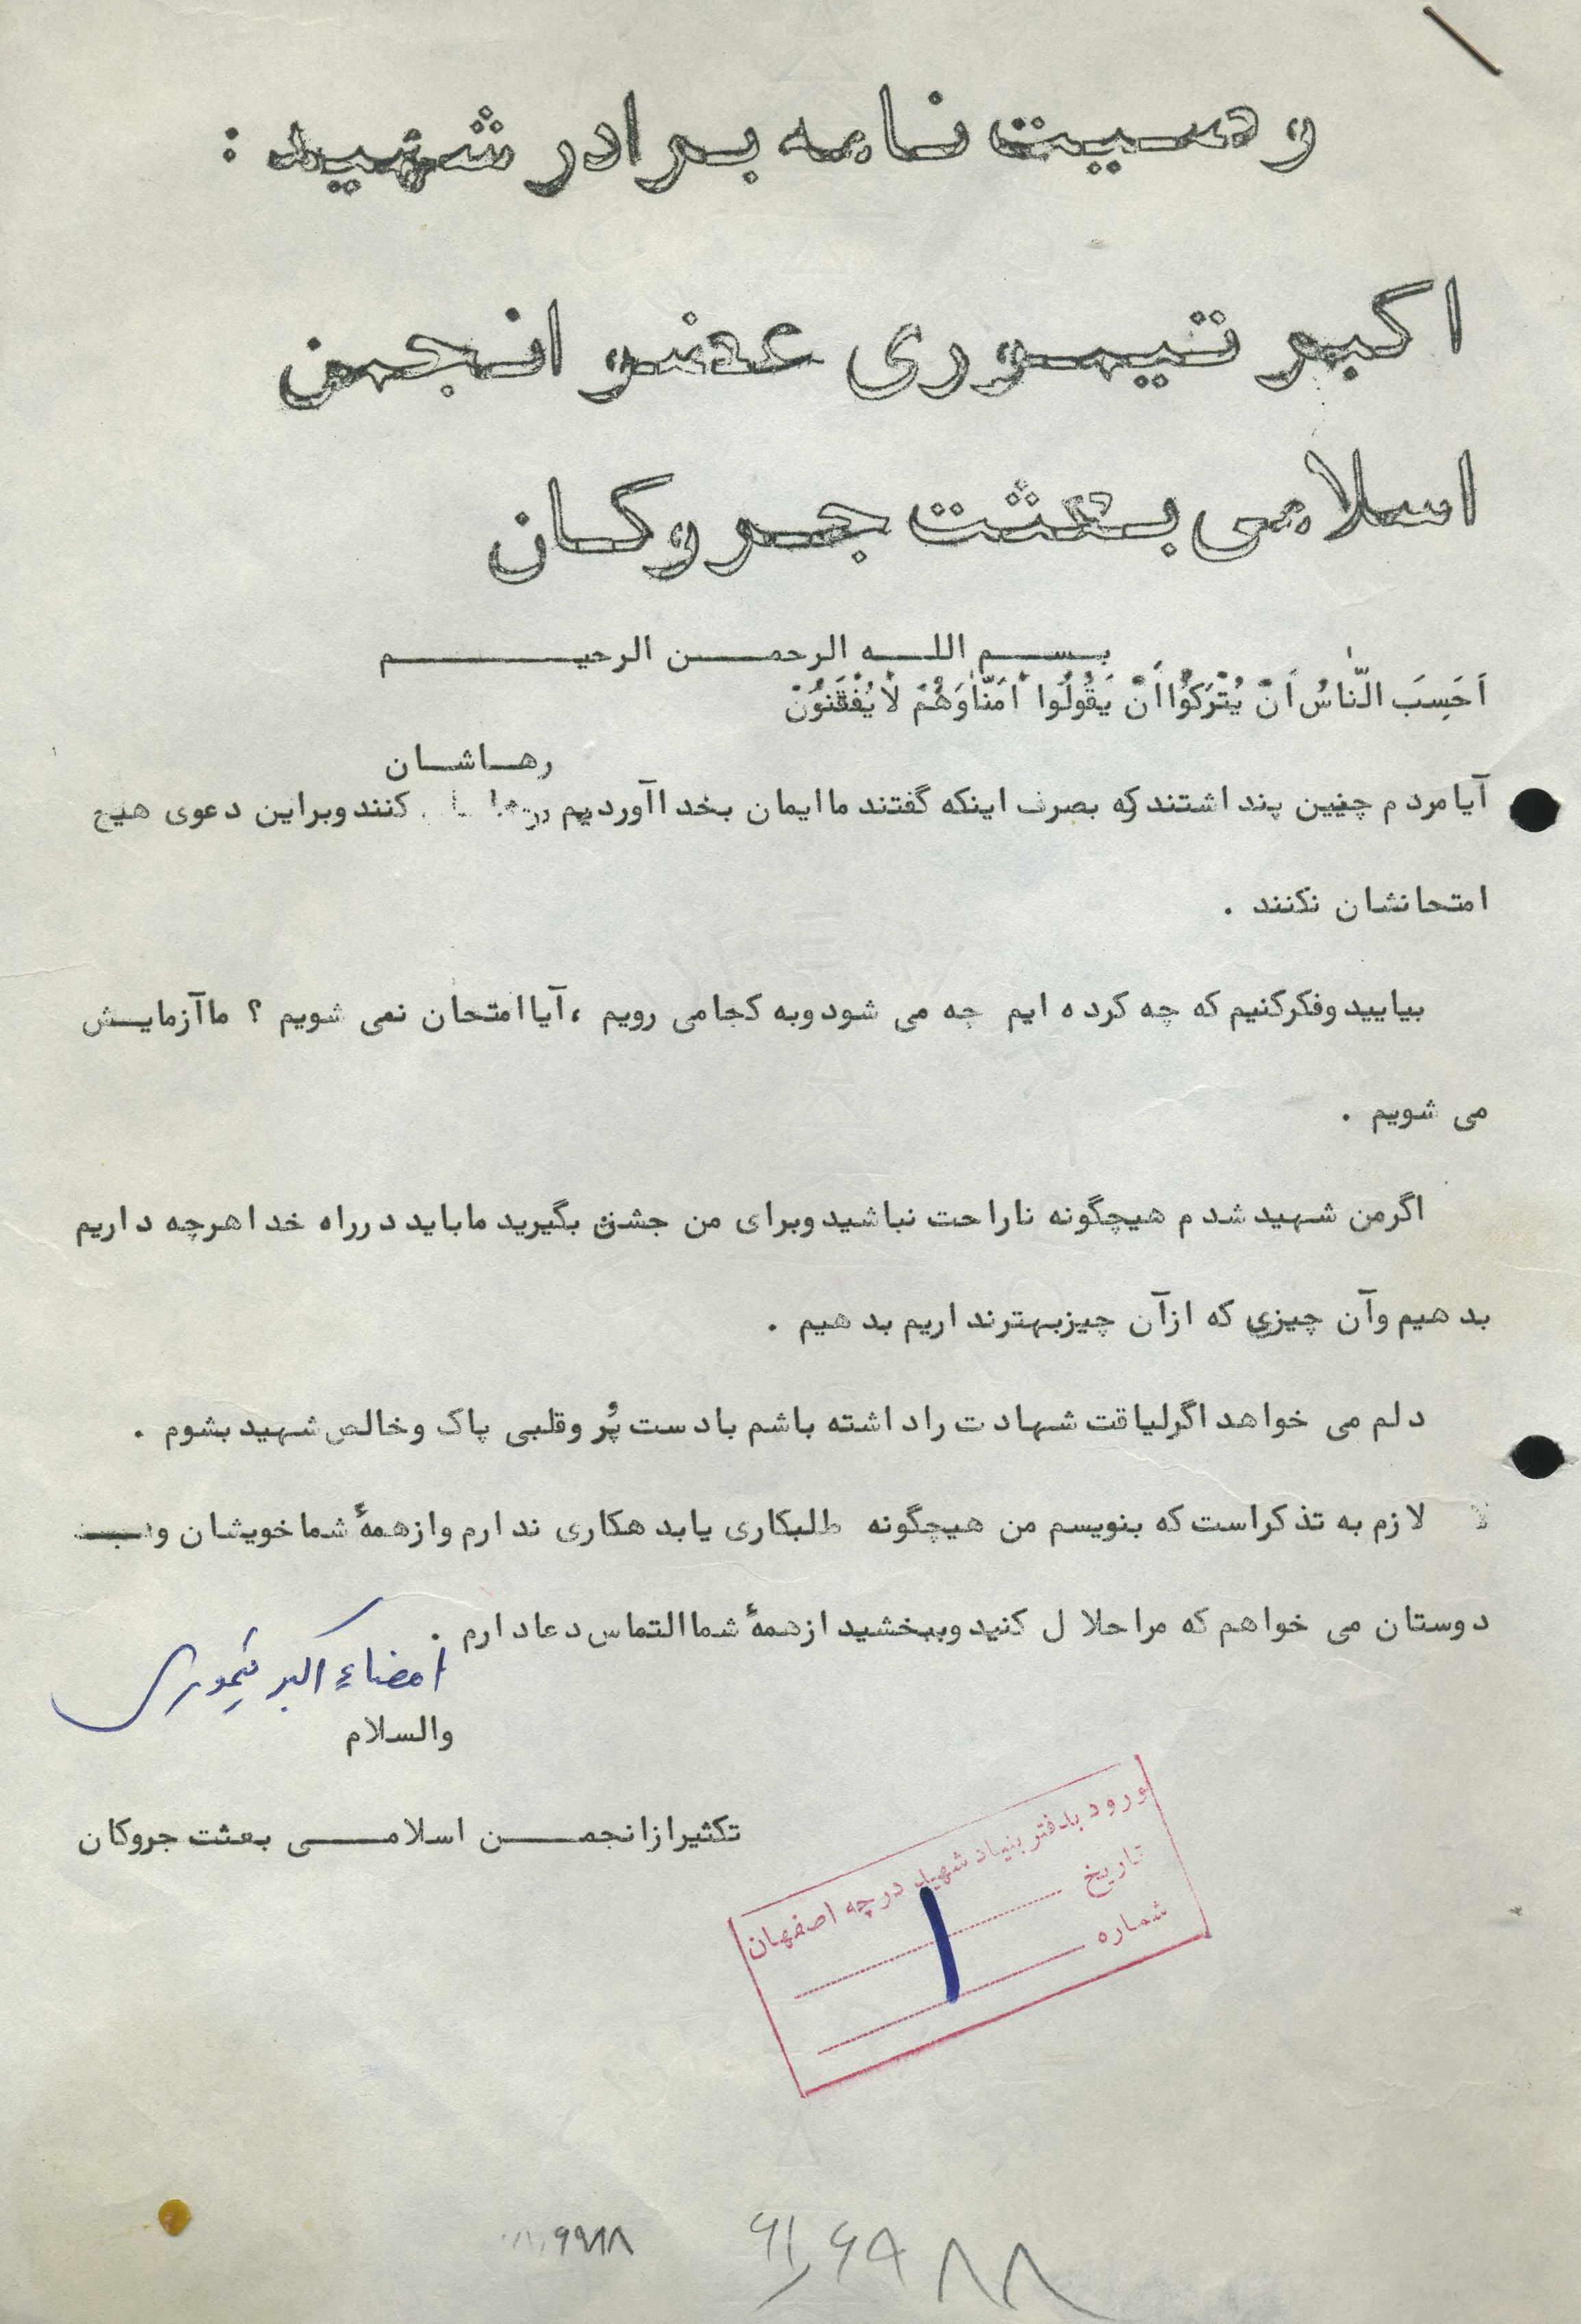 وصیت نامه برادر شهید :
اکبر تیموری عضو انجمن
اسلامی بعثت جروکان
بسم اللـه الرحمـن الرحیـم
اَحَسِبَ النّاسُ اَنْ یُتْرَکُوا اَنْ یَقُولُوا امَنّا وَهُمْ لایُفْقَنوُنَ
رهـاشـان
آیا مردم چنین پنداشتند که بصرف اینکه گفتند ما ایمان بخدا آوردیم کنند وبر این دعوی هیچ
امتحانشان نکنند .
بیایید وفکر کنیم که چه کرده ایم چه می شود وبه کجا می رویم ، آیا امتحان نمی شویم ؟ ما آزمایـش
می شویم .
اگر من شهید شدم هیچگونه ناراحت نباشید وبرای من جشن بگیرید ما باید در راه خدا هرچه داریم
بدهیم وآن چیزی که از آن چیز بهتر نداریم بدهیم .
دلم می خواهد اگر لیاقت شهادت را داشته باشم با دست پُر وقلبی پاک وخالص شهید بشوم .
لازم به تذکر است که بنویسم من هیچگونه طلبکاری یا بدهکاری ندارم واز همهٔ شما خویشان و
دوستان می خواهم که مرا حلال کنید وببخشید از همهٔ شما التماس دعا دارم .
امضاء اکبر تیموری
والسلام
تکثیر از انجمـن اسلامـی بعثت جروکان
ورود بدفتر بنیاد شهید درچه اصفهان
تاریخ
شماره